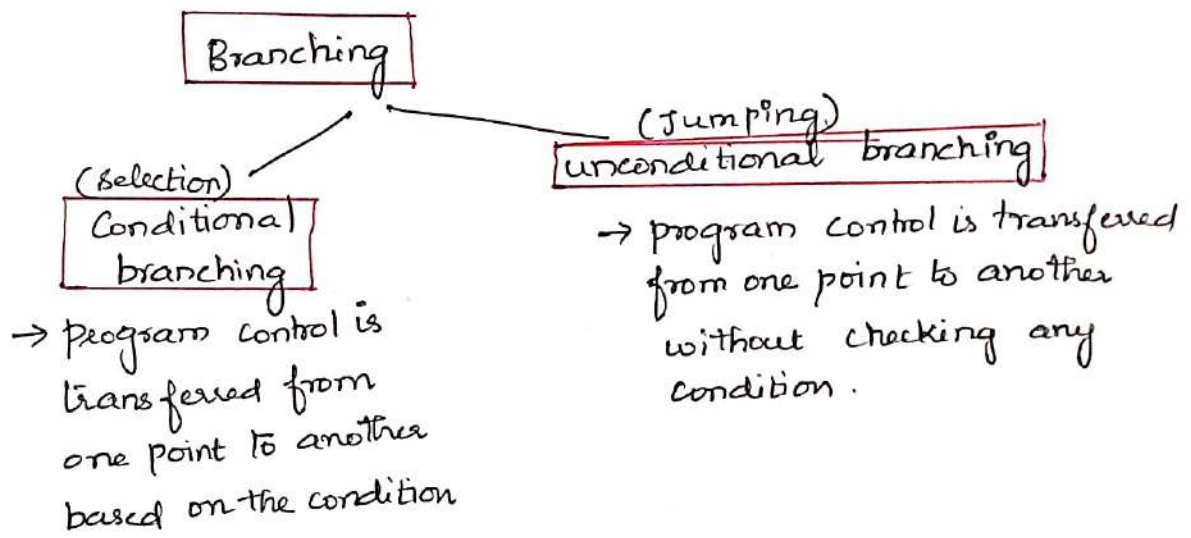 Branching
(selection)
Conditional
branching
→ program control is
transferred from
one point to another
based on the condition
(Jumping)
unconditional branching
→ program control is transferred
from one point to another
without checking any
condition.